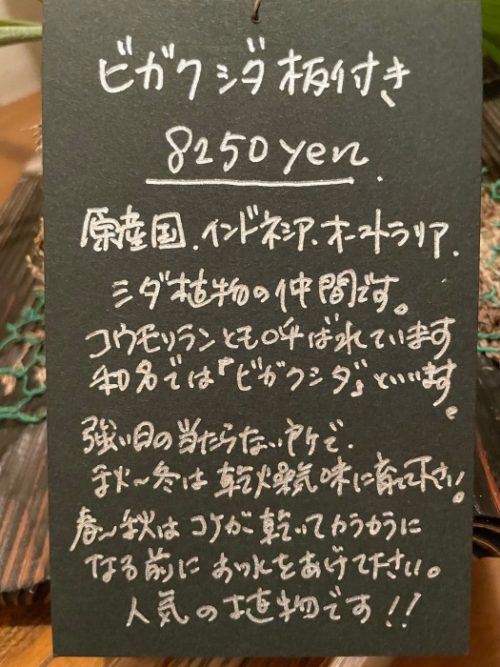 ビガクシダ板付き
8250yen.
原産国.インドネシア.オーストラリア.
シダ植物の仲間です。
コウモリランとも呼ばれています
和名では『ビガクシダ』といいます。
強い日の当たらない所で、
秋〜冬は乾燥気味に育て下さい。
春〜秋はコケが乾いてカラカラに
なる前にお水をあげて下さい。
人気の植物です!!